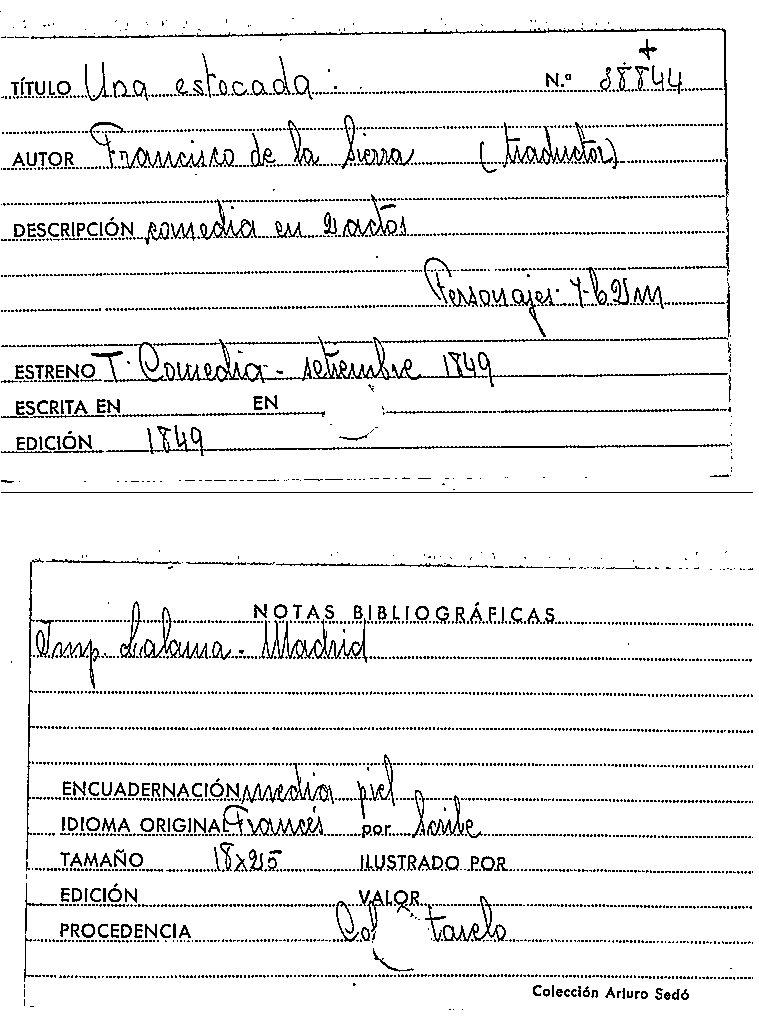 +
TÍTULO Una estocada. N.º 38844
AUTOR Francisco de la Sierra (traductor)
DESCRIPCIÓN comedia en 2 actos
Personajes
ESTRENO T. Comedia - setiembre 1849
ESCRITA EN EN
EDICIÓN 1849
NOTAS BIBLIOGRÁFICAS
Imp. Lalama - Madrid
ENCUADERNACIÓN media piel
IDIOMA ORIGINAL Francés por Scribe
TAMAÑO 18x25 ILUSTRADO POR
EDICIÓN VALOR
PROCEDENCIA Co tarelo
Colección Arturo Sedó